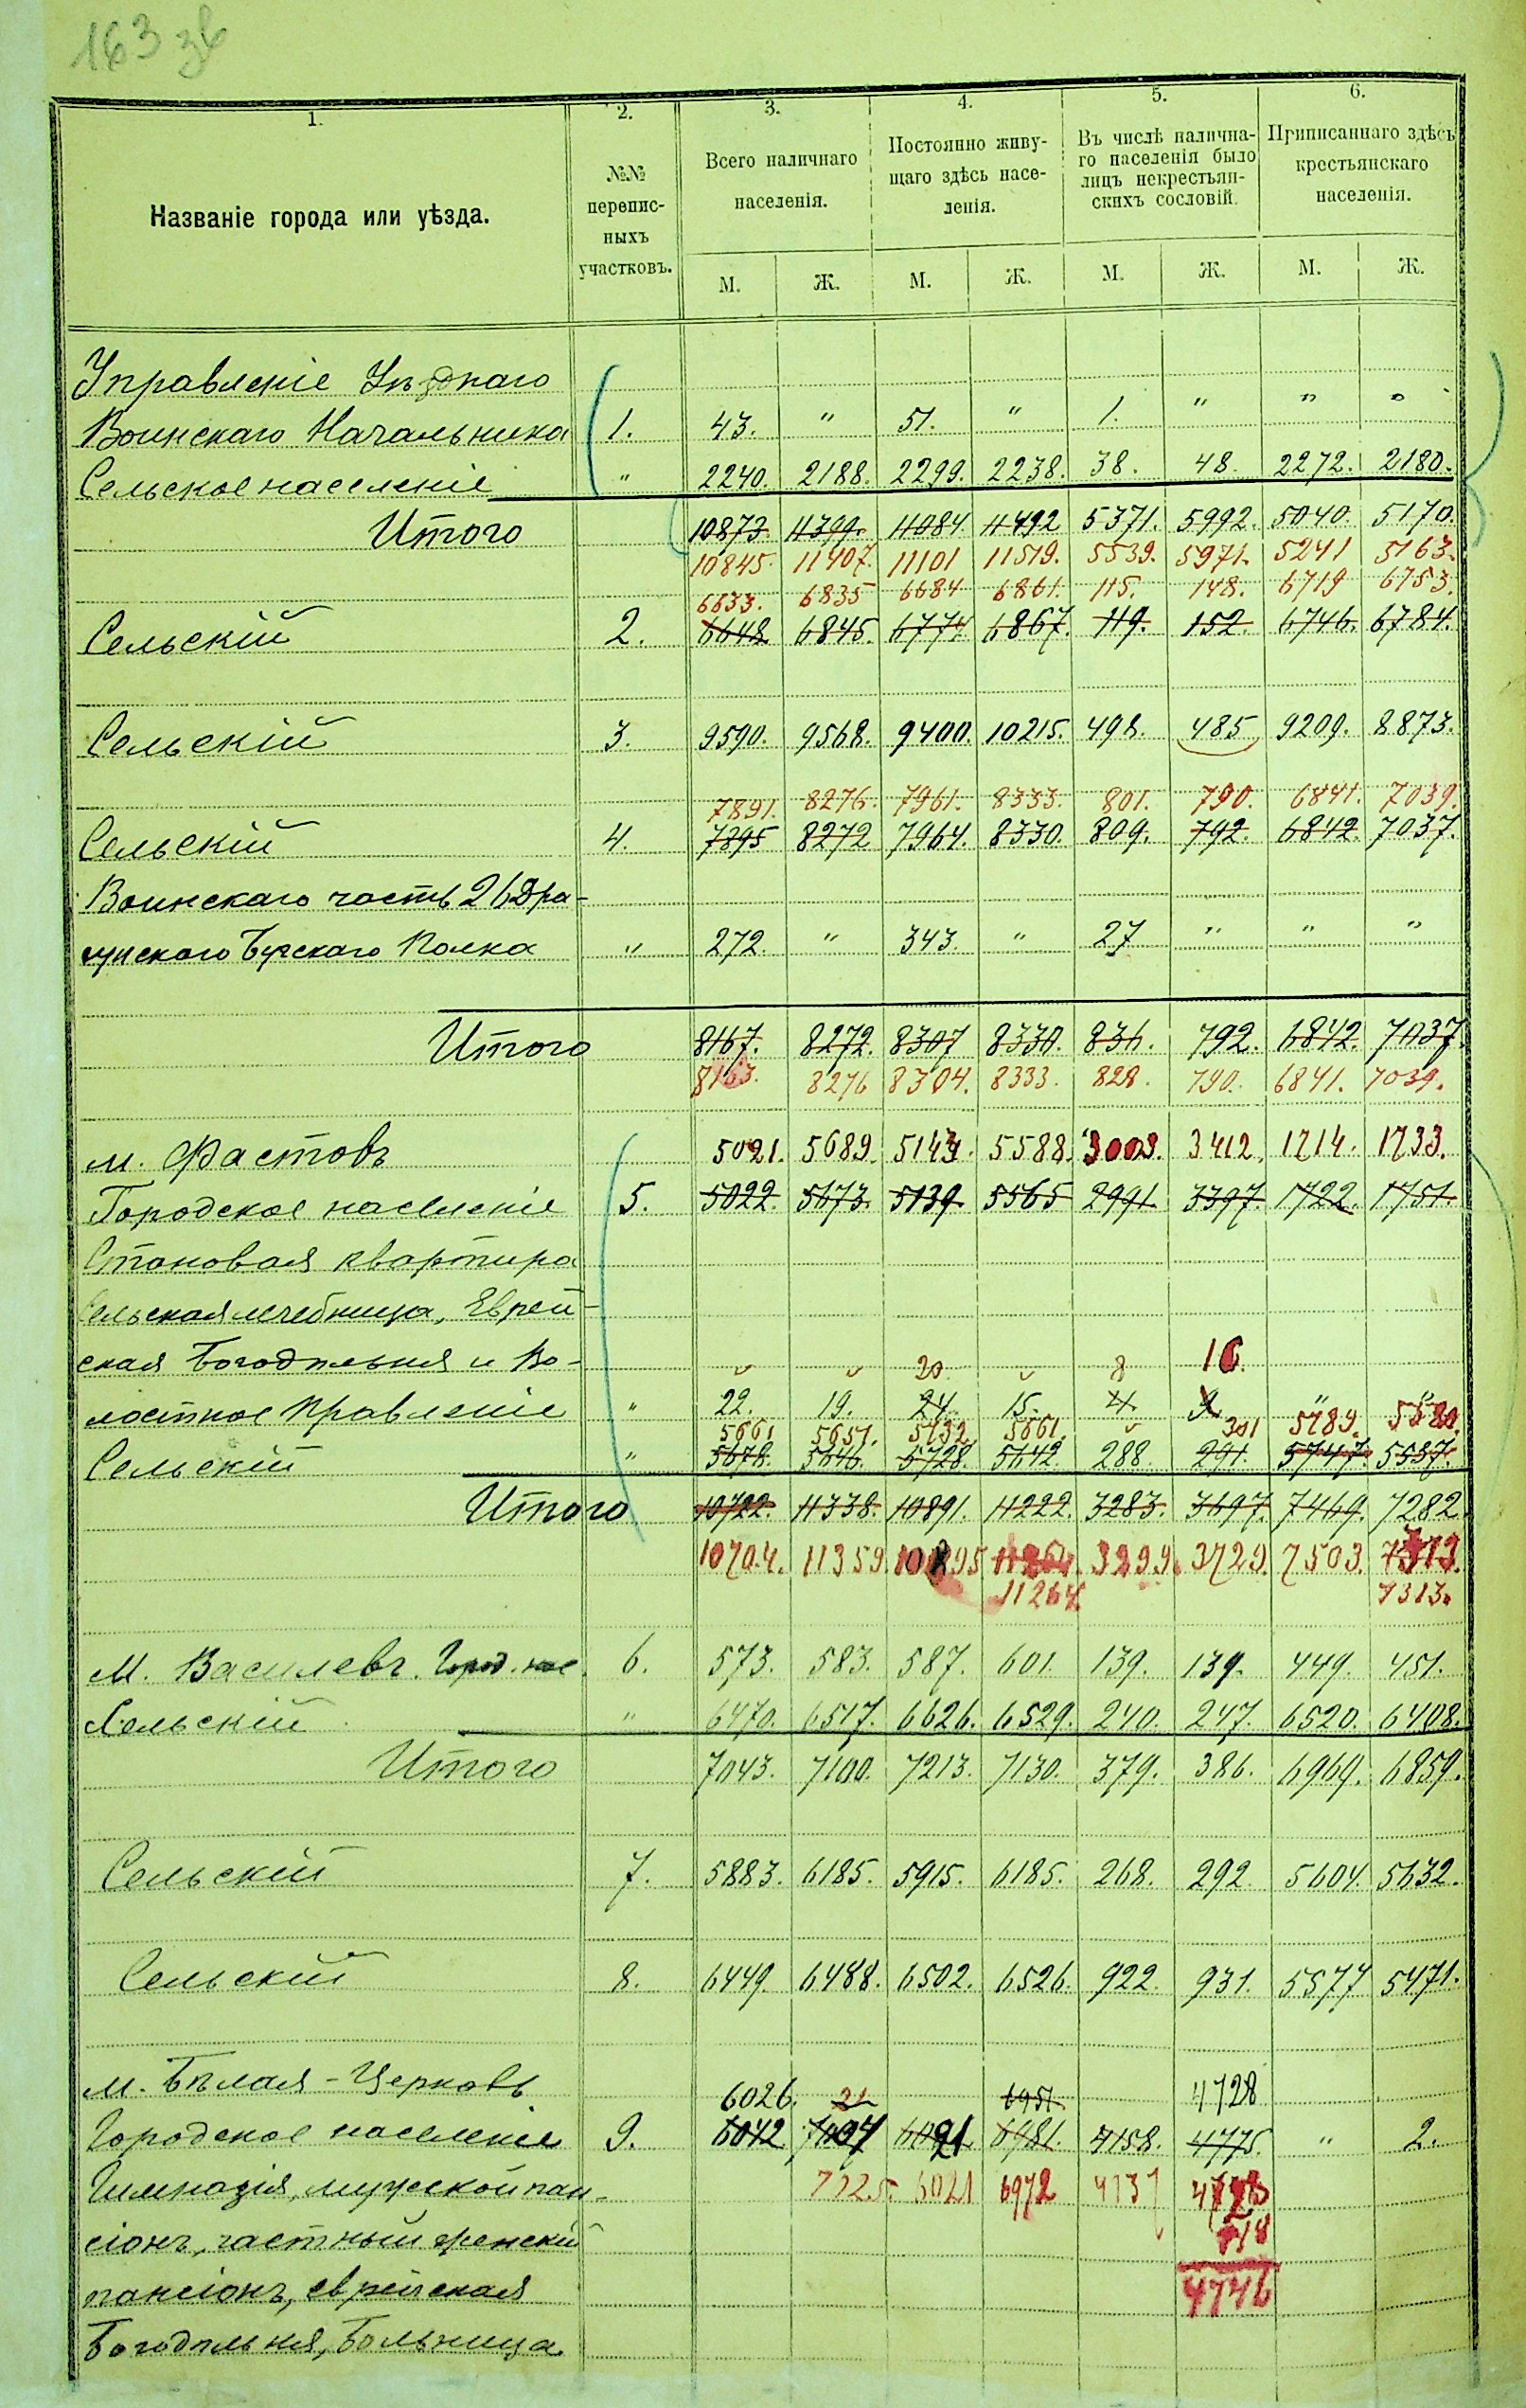 163 зв
1. 2. 3. 4. 5. 6.
Названіе города или уѣзда.
№№ перепис-
ныхъ
участковъ.
Всего наличнаго
населенія.
Постоянно живу-
щаго здѣсь насе-
ленія.
Въ числѣ налична-
го населенія было
лицъ некрестьян-
скихъ сословій.
Приписаннаго здѣсь
крестьянскаго
населенія.
М. Ж. М. Ж. М. Ж. М. Ж.
Управленіе Уѣзднаго
Воинскаго Начальника 1. 43. " 51. " 1. " " "
Сельское населеніе " 2240. 2188. 2299. 2238. 38. 48. 2272. 2180.
Итого 10873. 11399. 11084 11492 5371. 5992. 5040. 5170.
10845. 11407. 11101 11519. 5539. 5971. 5241 5163.
6633. 6835 6684 6861. 115. 148. 6719 6753.
Сельскій 2. 6648 6845. 6774 6867. 119. 152. 6746. 6784.
Сельскій 3. 9590. 9568. 9400. 10215. 498. 485 9209. 8873.
7891. 8276. 7961. 8333. 801. 790. 6841. 7039.
Сельскій 4. 7895 8272 7964. 8330. 809. 792. 6842. 7037.
Воинскаго часть 26 Дра-
гунскаго Бугскаго Полка " 272. " 343. " 27 " " "
Итого 8167. 8272. 8307 8330. 836. 792. 6842. 7037.
8163. 8276 8304. 8333. 828. 790. 6841. 7039.
м. Фастовъ 5021. 5689. 5143. 5588. 3003. 3412. 1714. 1733.
Городское населеніе 5. 5022. 5673. 5139. 5565 2991 3397. 1722. 1751.
Становая квартира
Сельская лечебница, Еврей-
ская Богодѣльня и Во- 20 8 16.
лостное Правленіе " 22. 19. 24. 15. 4. " "
5661 5651. 5732. 5661. 301 5789. 5580.
Сельскій " 5678. 5646. 5728. 5642. 288. 291. 5747. 5537.
Итого 10722. 11338. 10891. 11222. 3283. 3697. 7469. 7282.
10704. 11359. 10895 11264. 3299. 3729. 7503. 7313.
11264 7313.
М. Василевъ. Город. нас. 6. 573. 583. 587. 601. 139. 139. 449. 451.
Сельскій " 6470. 6517. 6626. 6529. 240. 247. 6520. 6408.
Итого 7043. 7100. 7213. 7130. 379. 386. 6969. 6859.
Сельскій 7. 5883. 6185. 5915. 6185. 268. 292. 5604. 5632.
Сельскій 8. 6449. 6488. 6502. 6526. 922. 931. 5577 5471.
м. Бѣлая-Церковь 6026. 21 6951 4728
Городское населеніе 9. 6042 7004 6091 6981. 4158. 4775. " 2.
Гимназія, мужской пан- 6021 6972 4137 4728
сіонъ, частный женскій 18
пансіонъ, еврейская 4746
Богодѣльня, Больница